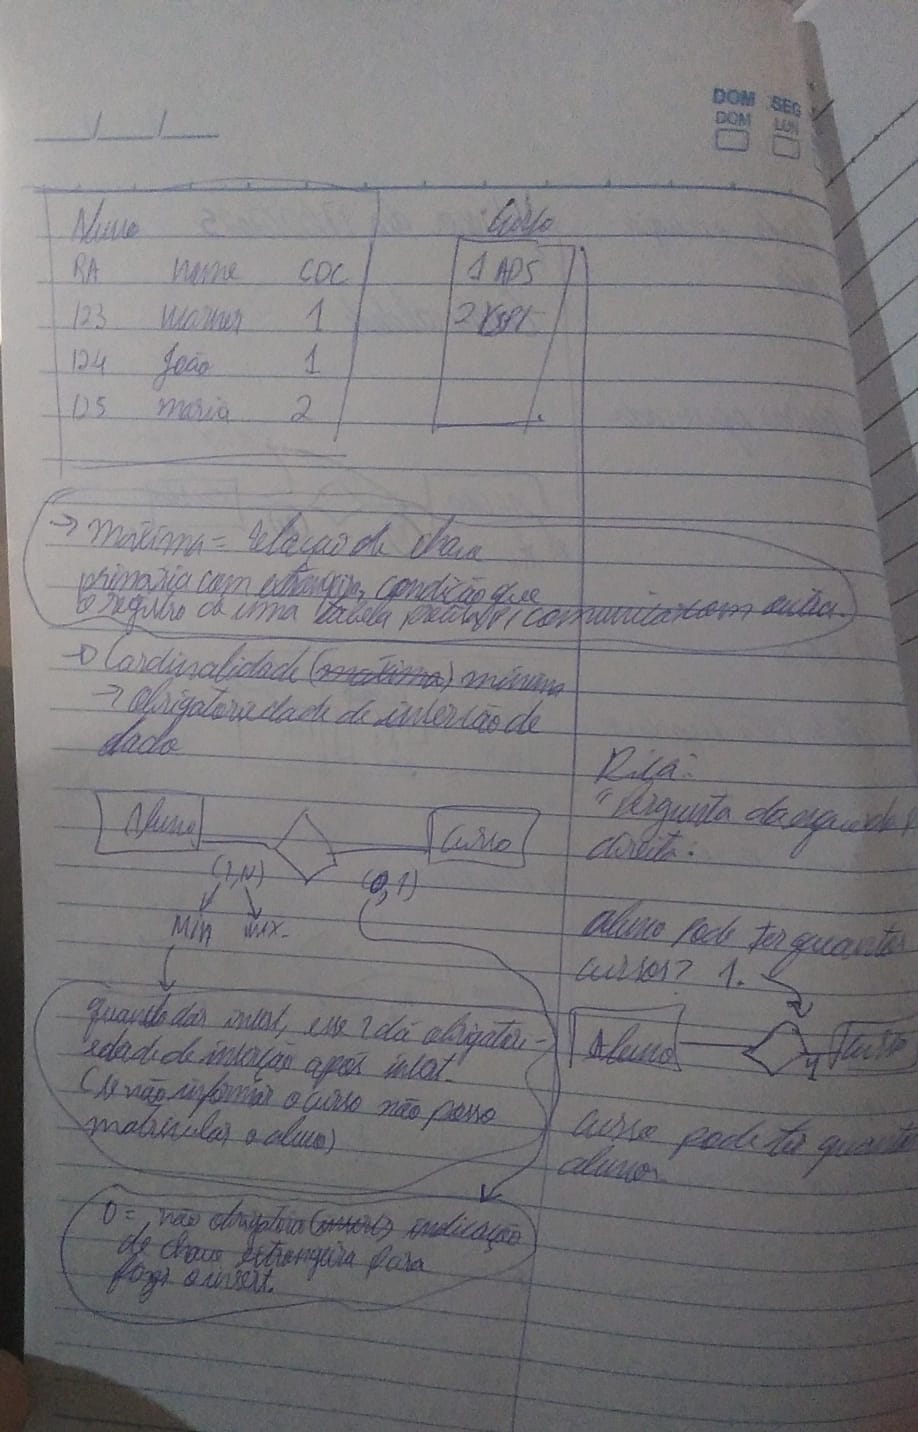 DOM SEG
DOM LUN
Aluno
RA nome CDC
123 1
124 João 1
125 maria 2
Curso
1 ADS
2
→ máxima = relação de chave
primaria com estrangeira, condição que
o registro de uma tabela comunica com outra.
→ Cardinalidade (máxima) mínima
→ obrigatoriedade de inserção de
dado
Aluno
Curso
(1,N)
(0,1)
Min max.
quando der insert, esse 1 dá obrigator-
iedade de inserção após insert.
(se não informar o curso não posso
matricular o aluno)
0 = não obrigatória (insert) indicação
de chave estrangeira para
fazer o insert.
"Pergunta da esquerda p
direita:
aluno pode ter quantos
cursos? 1.
Aluno
1
Curso
curso pode ter quantos
alunos.